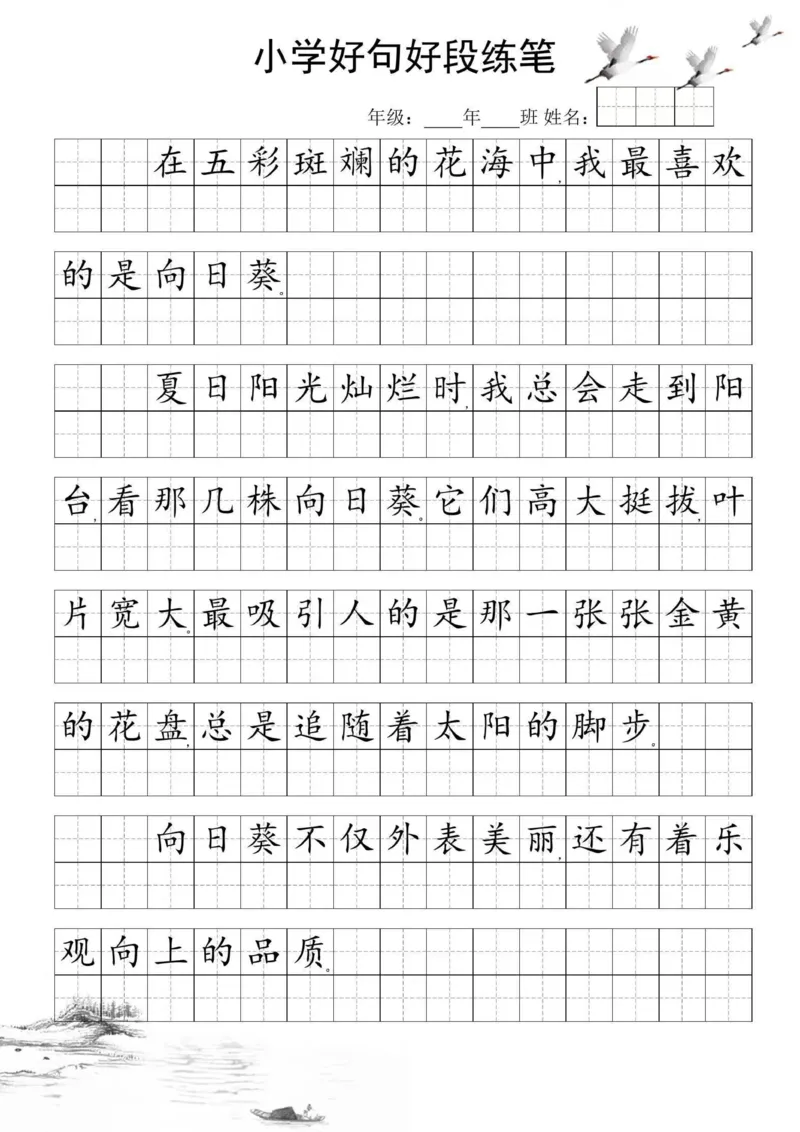 小学好句好段练笔
年级：____年____班 姓名：
在五彩斑斓的花海中,我最喜欢
的是向日葵。
夏日阳光灿烂时,我总会走到阳
台,看那几株向日葵。它们高大挺拔,叶
片宽大。最吸引人的是那一张张金黄
的花盘,总是追随着太阳的脚步。
向日葵不仅外表美丽,还有着乐
观向上的品质。